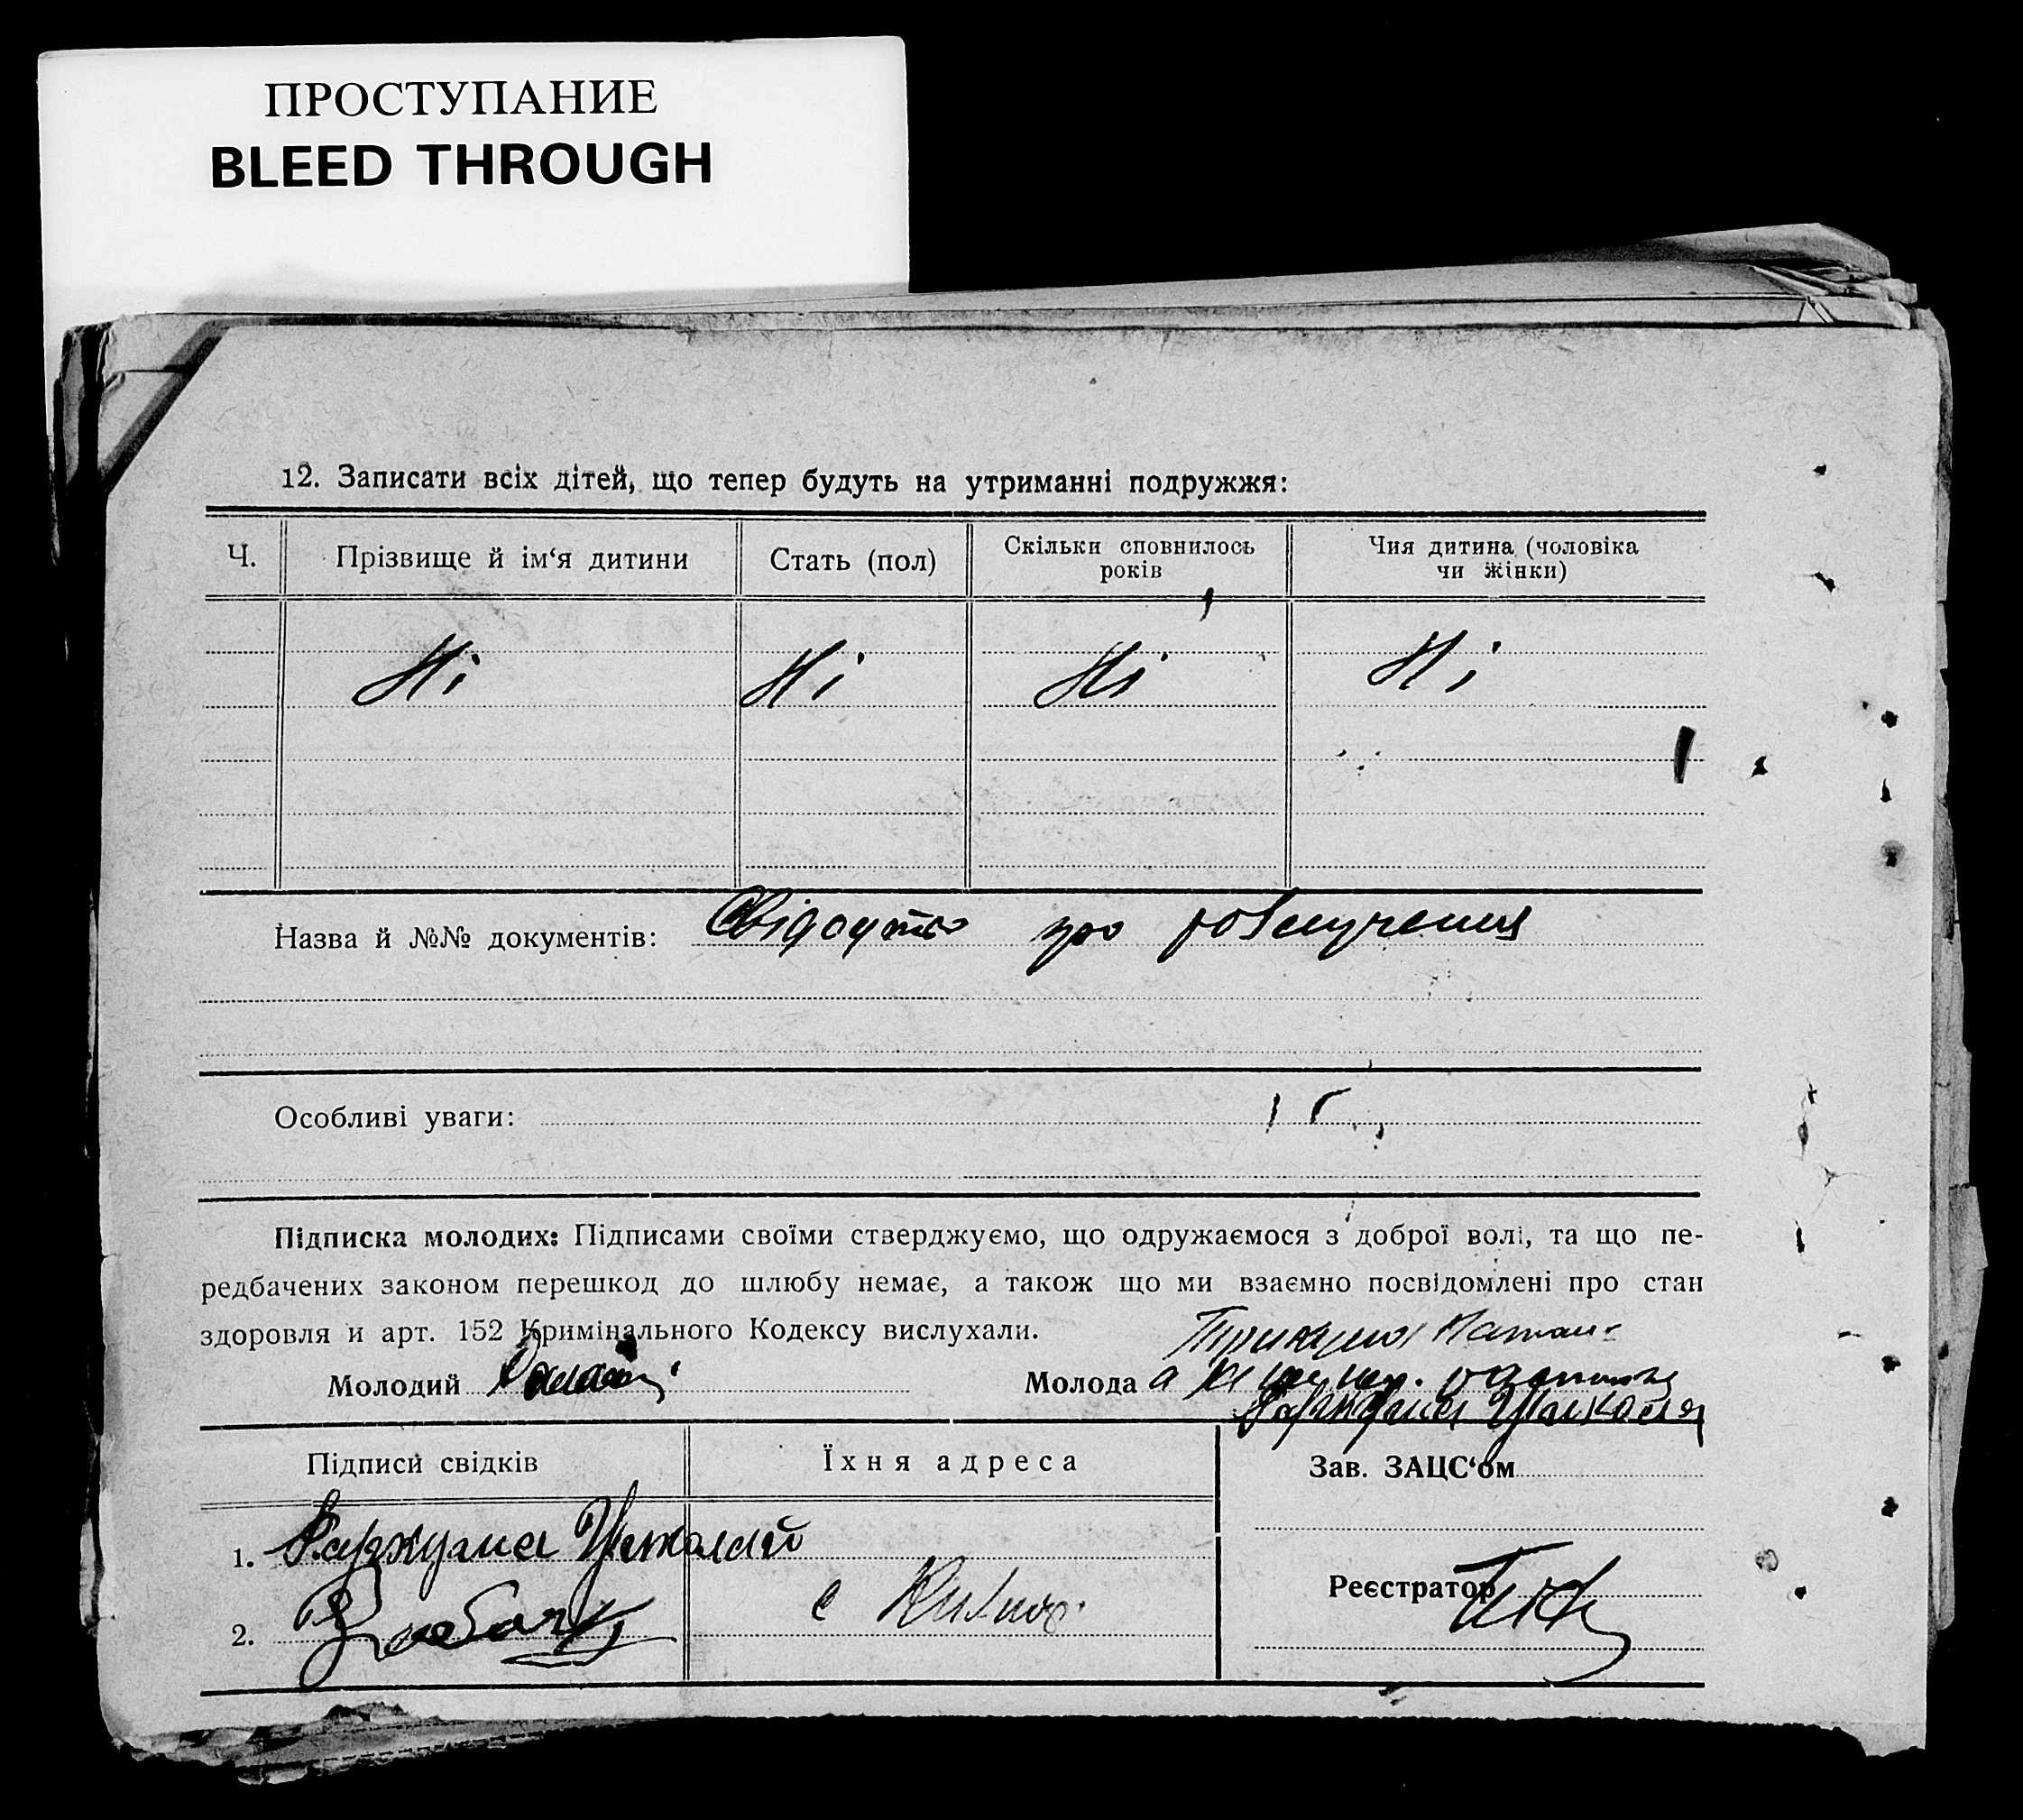 ПРОСТУПАНИЕ
BLEED THROUGH
12. Записати всіх дітей, що тепер будуть на утриманні подружжя:
Ч. Прізвище й ім‘я дитини Стать (пол) Скільки сповнилось років Чия дитина (чоловіка чи жінки)
Ні Ні Ні Ні
Назва й №№ документів: Свідоцтво про розлучення
Особливі уваги:
Підписка молодих: Підписами своїми стверджуємо, що одружаємося з доброї волі, та що пе-
редбачених законом перешкод до шлюбу немає, а також що ми взаємно посвідомлені про стан
здоровля и арт. 152 Кримінального Кодексу вислухали.
Молодий
Молода
Підписи свідків Їхня адреса Зав. ЗАЦС‘ом
1.
Реєстратор
2. с